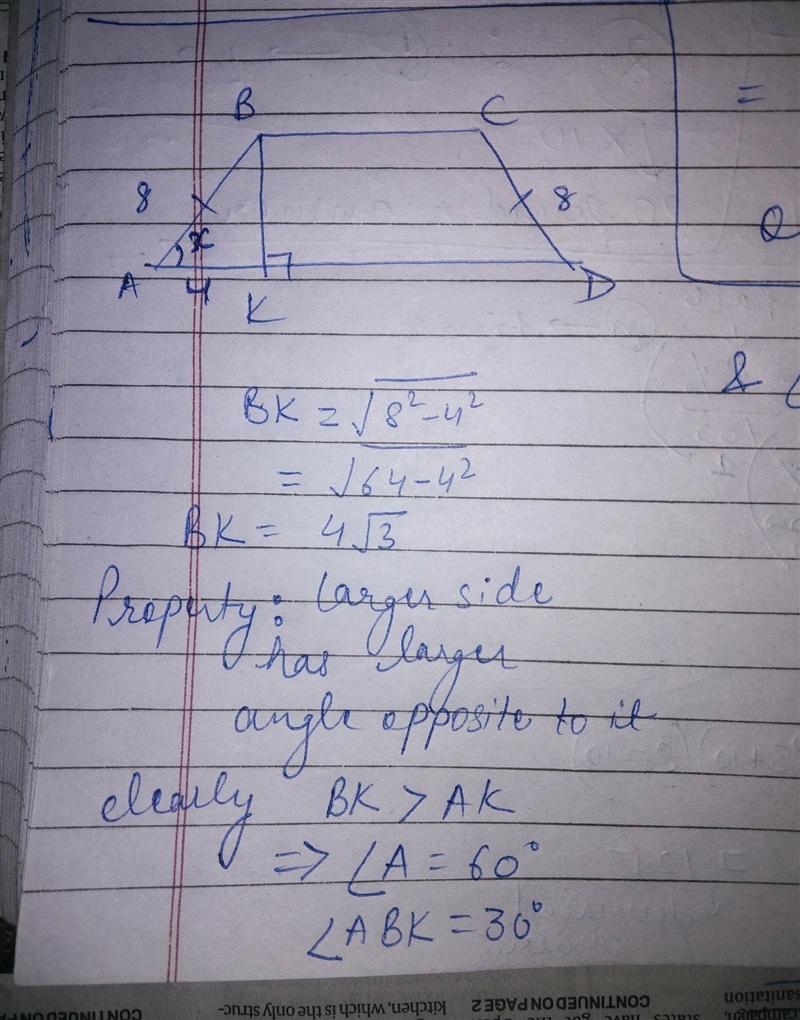 =
B
C
8
8
x
Q
A
4
K
D
& L
BK = √8²-4²
= √64-4²
BK = 4√3
Property: larger side
has larger
angle opposite to it
clearly BK > AK
=> ∠A = 60°
∠ABK = 30°
CONTINUED ON PAGE 2
kitchen, which is the only struc-
sanitation